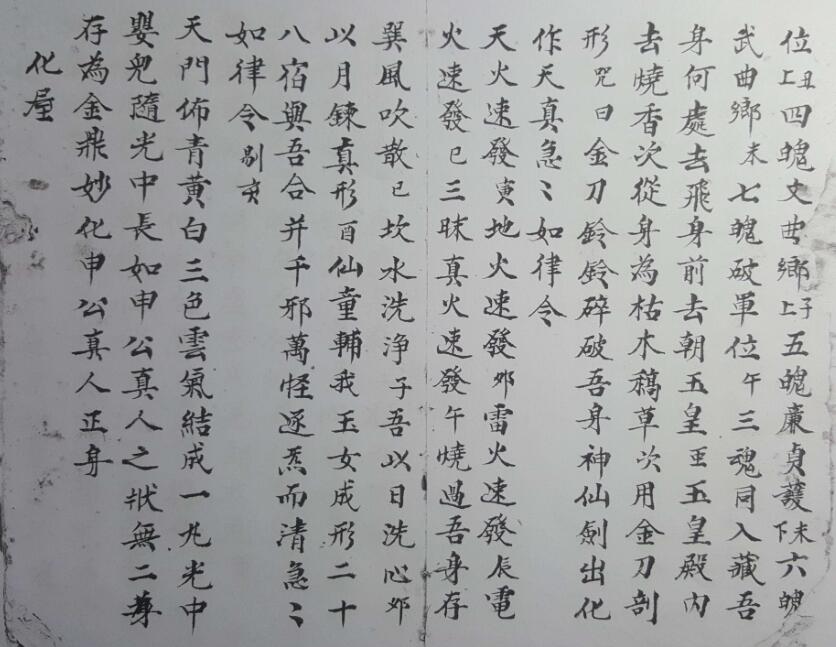 位上丑四魄文曲鄉上子五魄廉貞護下未六魄
武曲鄉未七魄破軍位午三魂同入藏吾
身何處去飛身前去朝玉皇玉皇殿內
去燒香次從身為枯木稿草次用金刀剖
形咒曰金刀鈴鈴碎破吾身神仙劍出化
作天真急〻如律令
天火速發寅地火速發卯雷火速發辰電
火速發巳三昧真火速發午燒過吾身存
巽風吹散巳坎水洗淨子吾以日洗心卯
以月鍊真形酉仙童輔我玉女成形二十
八宿與吾合并千邪萬怪逐炁而清急〻
如律令剔亥
天門佈青黃白三色雲氣結成一丸光中
嬰兒隨光中長如申公真人之狀無二等
存為金鼎妙化申公真人正身
化屋